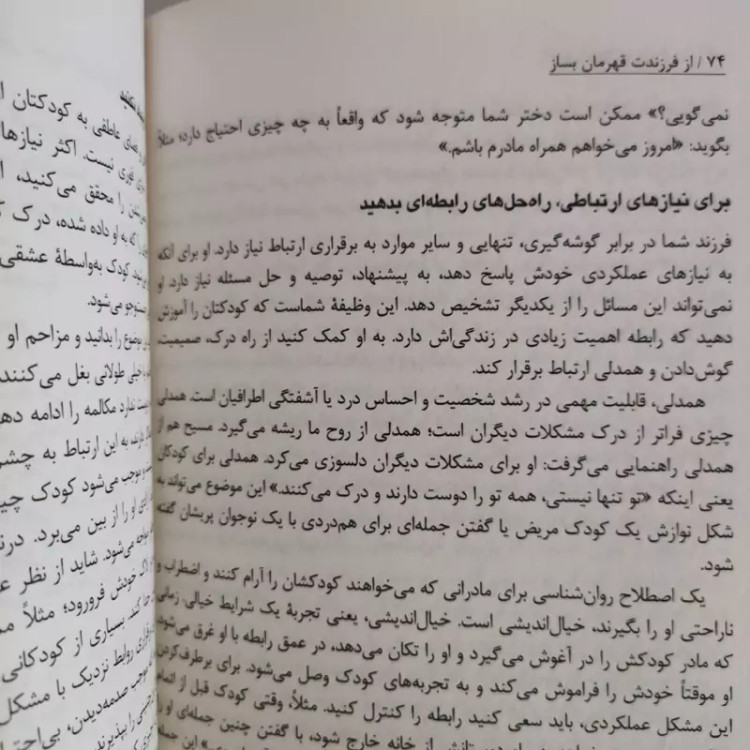 ۷۴ / از فرزندت قهرمان بساز
نمی‌گویی؟» ممکن است دختر شما متوجه شود که واقعاً به چه چیزی احتیاج دارد؛ مثلاً
بگوید: «امروز می‌خواهم همراه مادرم باشم.»
برای نیازهای ارتباطی، راه‌حل‌های رابطه‌ای بدهید
فرزند شما در برابر گوشه‌گیری، تنهایی و سایر موارد به برقراری ارتباط نیاز دارد. او برای آنکه
به نیازهای عملکردی خودش پاسخ دهد، به پیشنهاد، توصیه و حل مسئله نیاز دارد. او
نمی‌تواند این مسائل را از یکدیگر تشخیص دهد. این وظیفهٔ شماست که کودکتان را آموزش
دهید که رابطه اهمیت زیادی در زندگی‌اش دارد. به او کمک کنید از راه درک، صمیمیت،
گوش‌دادن و همدلی ارتباط برقرار کند.
همدلی، قابلیت مهمی در رشد شخصیت و احساس درد یا آشفتگی اطرافیان است. همدلی
چیزی فراتر از درک مشکلات دیگران است؛ همدلی از روح ما ریشه می‌گیرد. مسیح هم از
همدلی راهنمایی می‌گرفت: او برای مشکلات دیگران دلسوزی می‌کرد. همدلی برای کودکان
یعنی اینکه «تو تنها نیستی، همه تو را دوست دارند و درک می‌کنند.» این موضوع می‌تواند به
شکل نوازش یک کودک مریض یا گفتن جمله‌ای برای هم‌دردی با یک نوجوان پریشان گفته
شود.
یک اصطلاح روان‌شناسی برای مادرانی که می‌خواهند کودکشان را آرام کنند و اضطراب و
ناراحتی او را بگیرند، خیال‌اندیشی است. خیال‌اندیشی، یعنی تجربهٔ یک شرایط خیالی زمانی
که مادر کودکش را در آغوش می‌گیرد و او را تکان می‌دهد، در عمق رابطه با او غرق می‌شود،
او موقتاً خودش را فراموش می‌کند و به تجربه‌های کودک وصل می‌شود. برای برطرف‌کردن
این مشکل عملکردی، باید سعی کنید رابطه را کنترل کنید. مثلاً، وقتی کودک قبل از اتمام
دوستانش از خانه خارج شود، با گفتن چنین جمله‌ای او را
این جمله
عاطفی به کودکتان
فوری نیست. اکثر نیازها
را محقق می‌کنید،
که به او داده شده، درک
کودک به‌واسطهٔ عشقی
جستوجو می‌شود.
موضوع را بدانید و مزاحم او
خیلی طولانی بغل می‌کنند
ندارد مکالمه را ادامه
به این ارتباط به
موجب می‌شود کودک
او را از بین می‌برد.
می‌شود. شاید از نظر
خودش فرورود؛ مثلاً
بسیاری از کودکانی
روابط نزدیک با مشکل
موجب صدمه‌دیدن،
را بپذیرند.